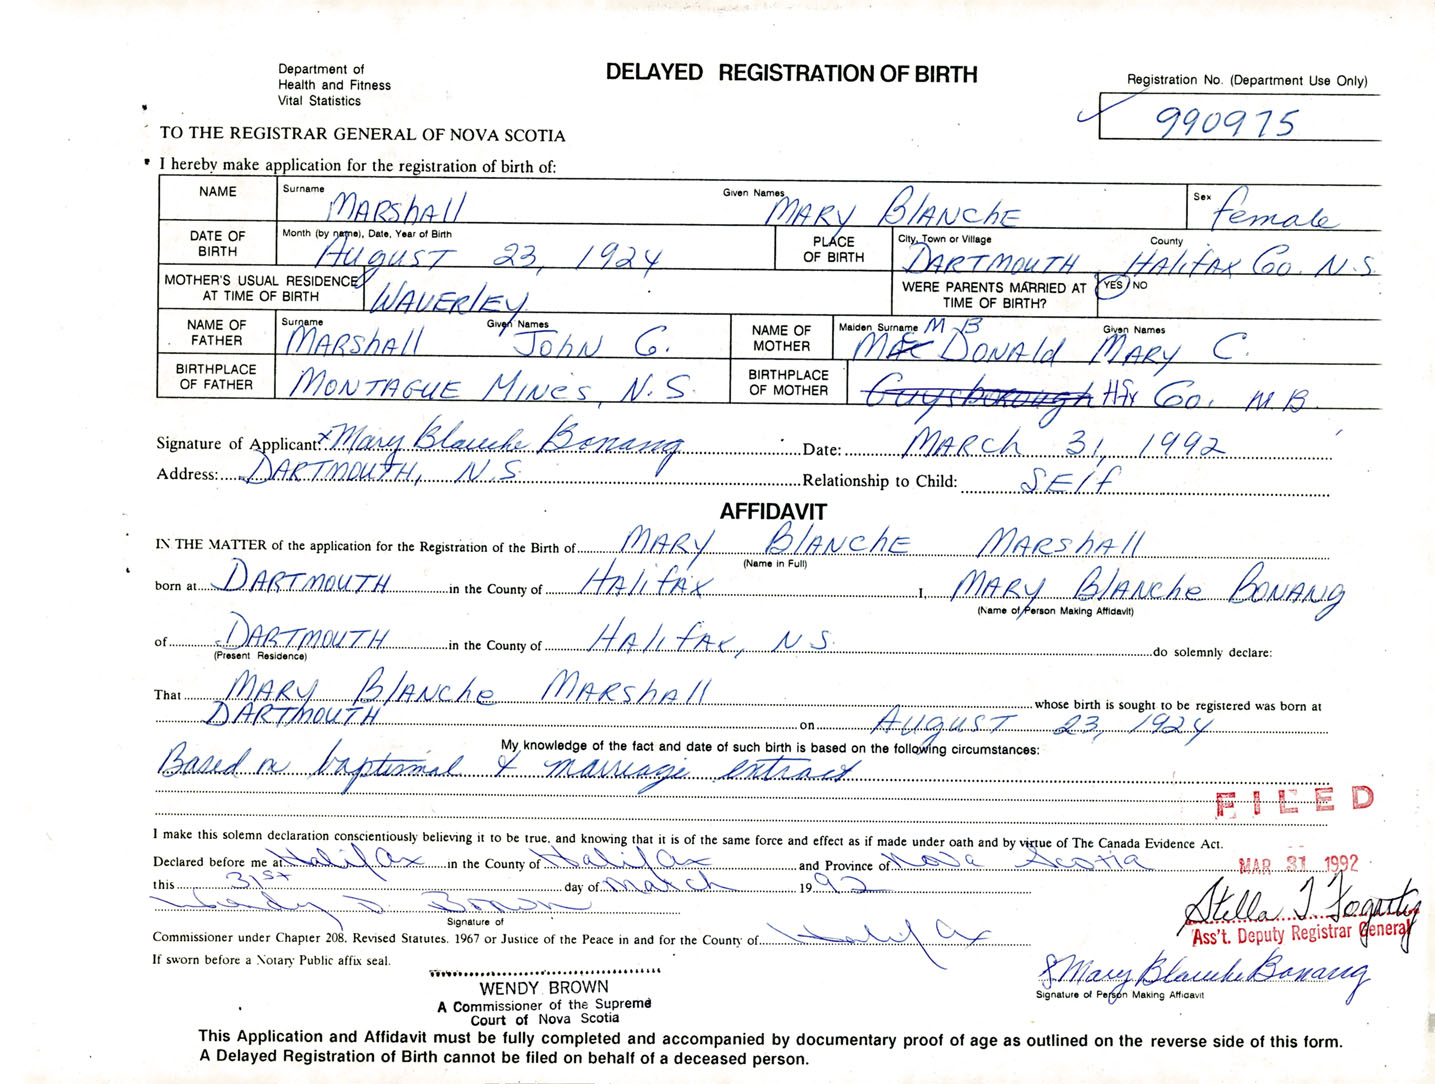 Department of
Health and Fitness
Vital Statistics
DELAYED REGISTRATION OF BIRTH
Registration No. (Department Use Only)
990975
TO THE REGISTRAR GENERAL OF NOVA SCOTIA
I hereby make application for the registration of birth of:
NAME Surname MARSHALL Given Names MARY BLANCHE Sex female
DATE OF BIRTH Month (by name), Date, Year of Birth AUGUST 23, 1924 PLACE OF BIRTH City, Town or Village DARTMOUTH County HALIFAX Co. N.S.
MOTHER'S USUAL RESIDENCE AT TIME OF BIRTH WAVERLEY WERE PARENTS MARRIED AT TIME OF BIRTH? YES NO
NAME OF FATHER Surname MARSHALL Given Names JOHN G. NAME OF MOTHER Maiden Surname M B MAC DONALD Given Names MARY C.
BIRTHPLACE OF FATHER MONTAGUE MINES, N.S. BIRTHPLACE OF MOTHER Guysborough Hfx Co. M B
Signature of Applicant: x Mary Blanche Bonang Date: MARCH 31, 1992
Address: DARTMOUTH, N.S. Relationship to Child: SELF
AFFIDAVIT
IN THE MATTER of the application for the Registration of the Birth of MARY BLANCHE MARSHALL
(Name in Full)
born at DARTMOUTH in the County of HALIFAX I, MARY BLANCHE BONANG
(Name of Person Making Affidavit)
of DARTMOUTH in the County of HALIFAX, N.S. do solemnly declare:
(Present Residence)
That MARY BLANCHE MARSHALL whose birth is sought to be registered was born at
DARTMOUTH on AUGUST 23, 1924
My knowledge of the fact and date of such birth is based on the following circumstances:
Based on baptismal & marriage extract
FILED
I make this solemn declaration conscientiously believing it to be true, and knowing that it is of the same force and effect as if made under oath and by virtue of The Canada Evidence Act.
Declared before me at Halifax in the County of Halifax and Province of Nova Scotia
MAR 31 1992
this 31st day of March 1992
Wendy D. Brown
Signature of
Stella T Fogarty
Ass't. Deputy Registrar General
Commissioner under Chapter 208, Revised Statutes, 1967 or Justice of the Peace in and for the County of Halifax
If sworn before a Notary Public affix seal.
x Mary Blanche Bonang
Signature of Person Making Affidavit
WENDY BROWN
A Commissioner of the Supreme
Court of Nova Scotia
This Application and Affidavit must be fully completed and accompanied by documentary proof of age as outlined on the reverse side of this form.
A Delayed Registration of Birth cannot be filed on behalf of a deceased person.